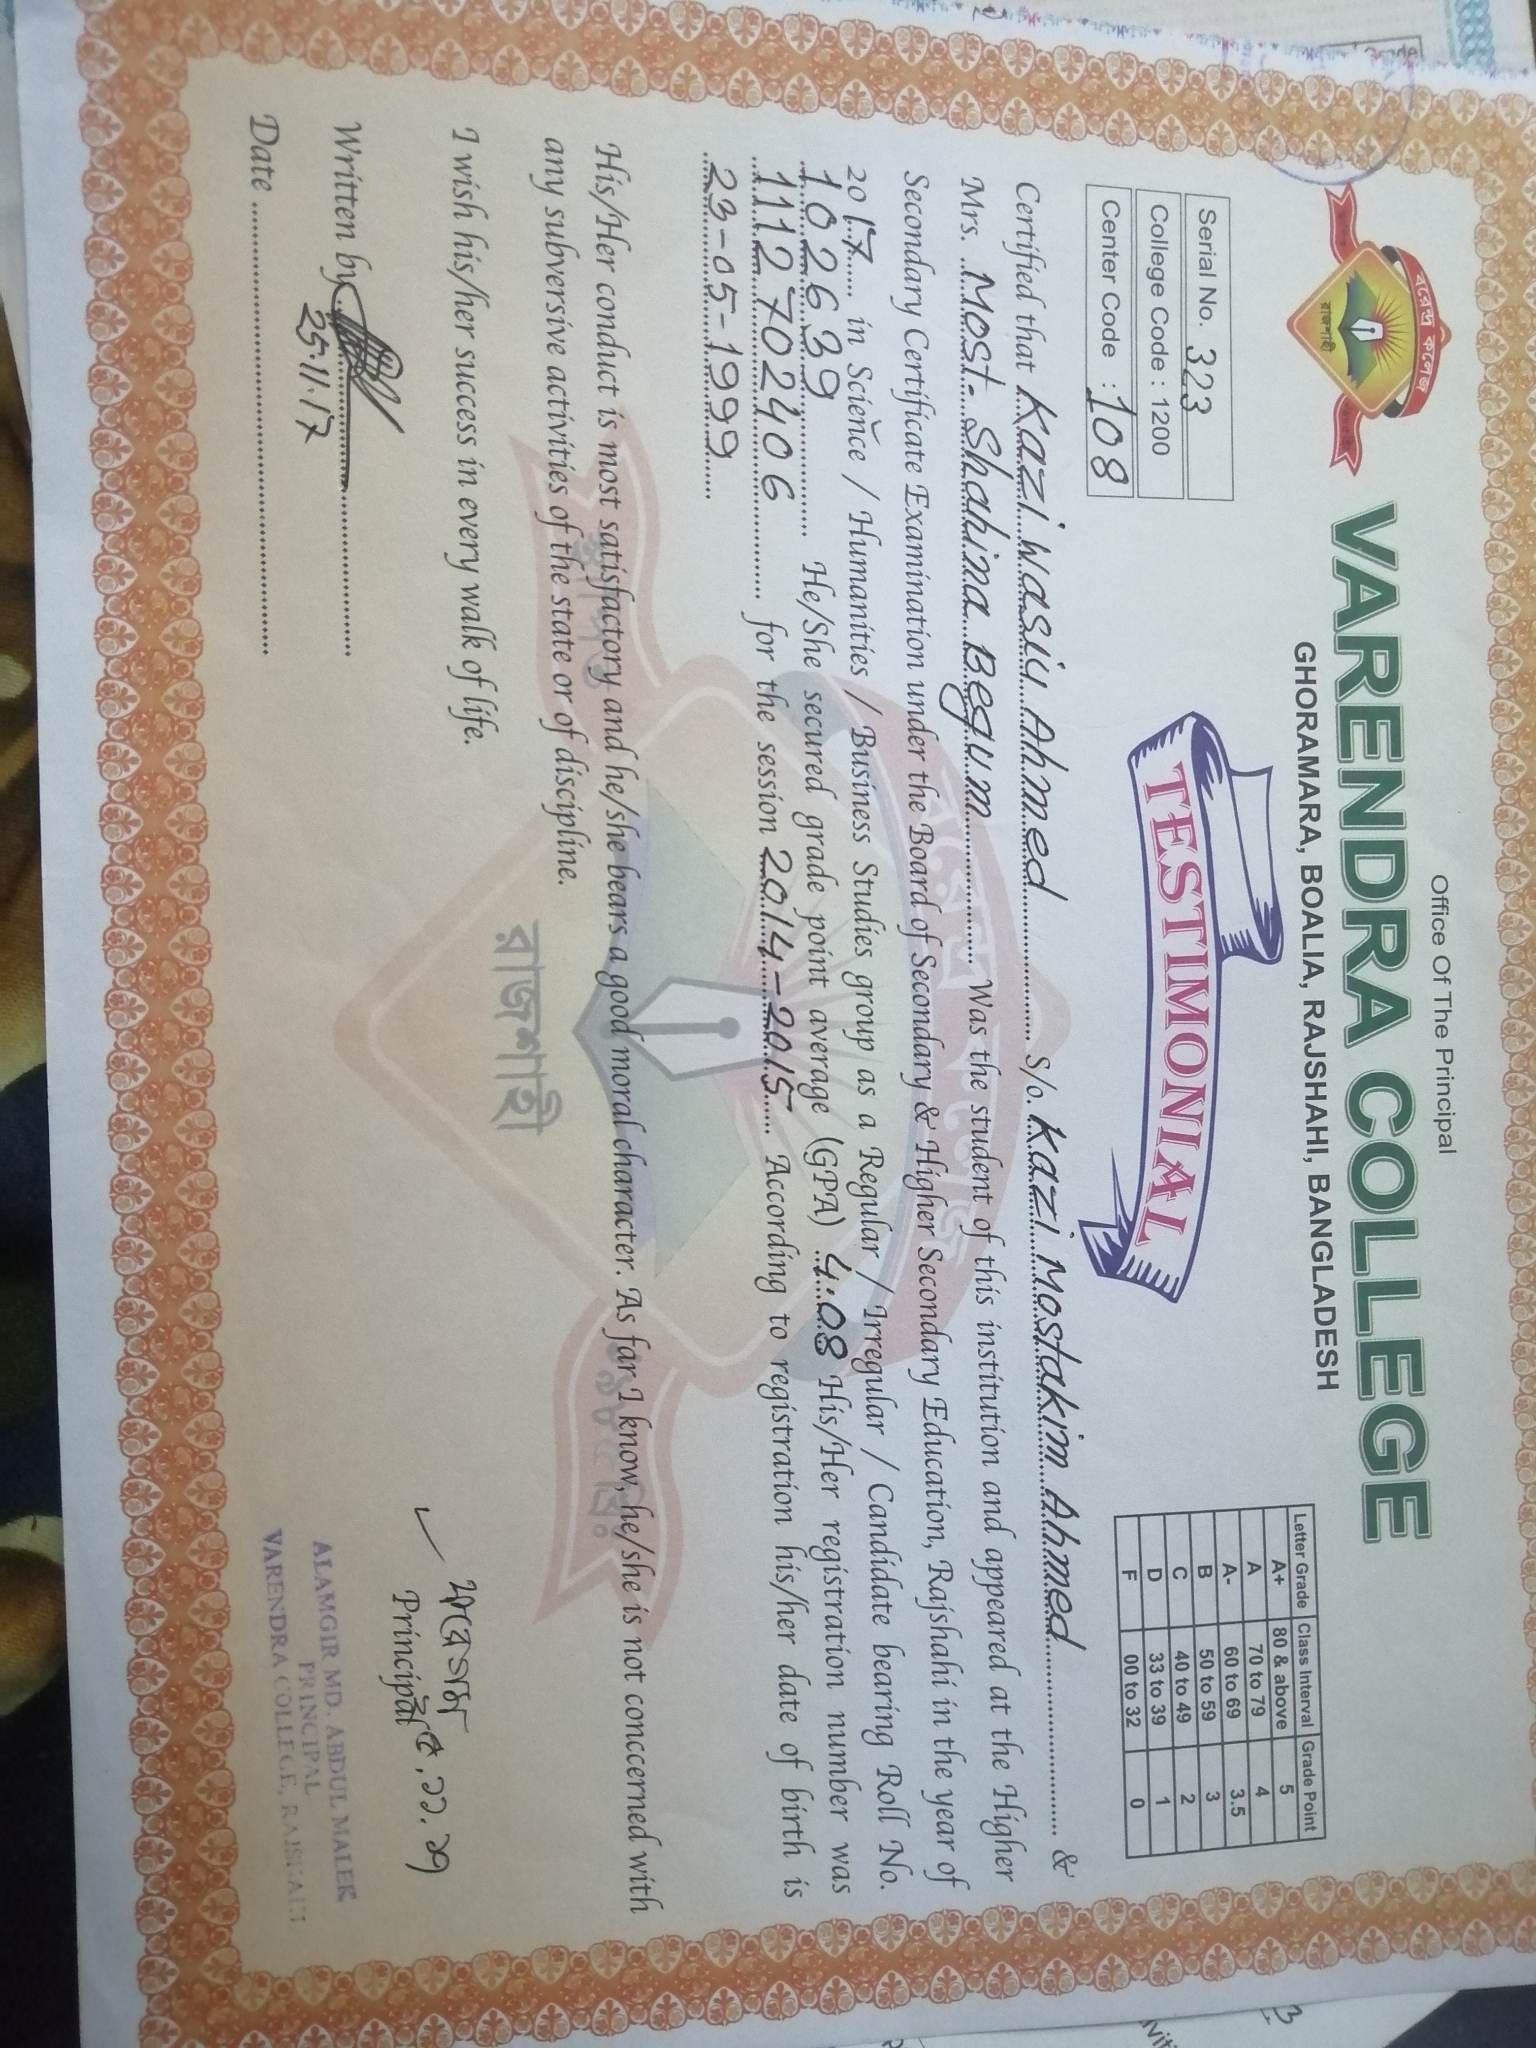 Office Of The Principal
VARENDRA COLLEGE
GHORAMARA, BOALIA, RAJSHAHI, BANGLADESH
বরেন্দ্র কলেজ
রাজশাহী
Serial No. 323
College Code : 1200
Center Code : 108
TESTIMONIAL
Letter Grade Class Interval Grade Point
A+ 80 & above 5
A 70 to 79 4
A- 60 to 69 3.5
B 50 to 59 3
C 40 to 49 2
D 33 to 39 1
F 00 to 32 0
Certified that Kazi Wasiu Ahmed S/o. Kazi Mostakim Ahmed &
Mrs. Most. Shahina Begum Was the student of this institution and appeared at the Higher
Secondary Certificate Examination under the Board of Secondary & Higher Secondary Education, Rajshahi in the year of
2017 in Science / Humanities / Business Studies group as a Regular / Irregular / Candidate bearing Roll No.
102639 He/She secured grade point average (GPA) 4.08 His/Her registration number was
1112702406 for the session 2014-2015 According to registration his/her date of birth is
23-05-1999
His/Her conduct is most satisfactory and he/she bears a good moral character. As far I know, he/she is not conccerned with
any subversive activities of the state or of discipline.
I wish his/her success in every walk of life.
বরেন্দ্র কলেজ
রাজশাহী
Written by
25.11.17
Date
Principal
ALAMGIR MD. ABDUL MALEK
PRINCIPAL
VARENDRA COLLEGE, RAJSHAHI